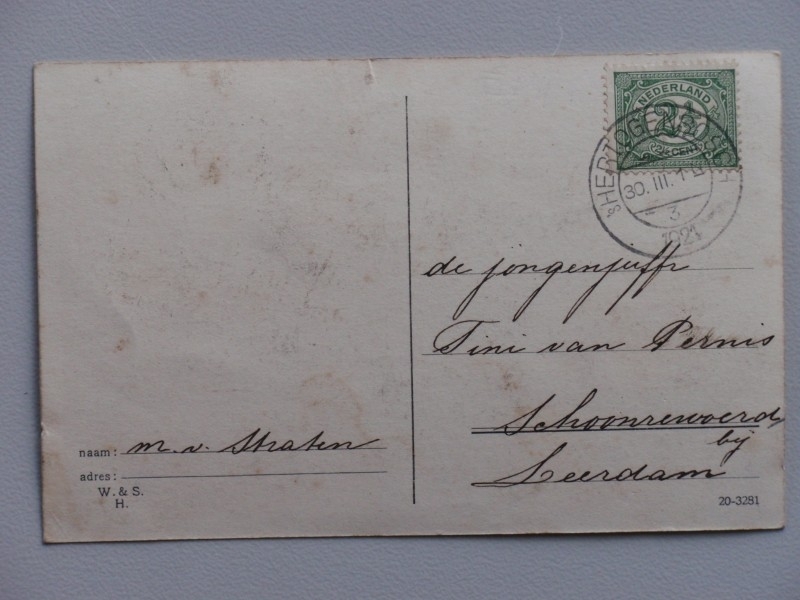 NEDERLAND
2½
CENT
'sHERTOGENBOSCH
30.III.
3
1921
de jongenjuffr
Tini van Pernis
Schoonrewoerd
bij
Leerdam
naam: m. v. Straten
adres:
W. & S.
H.
20-3281